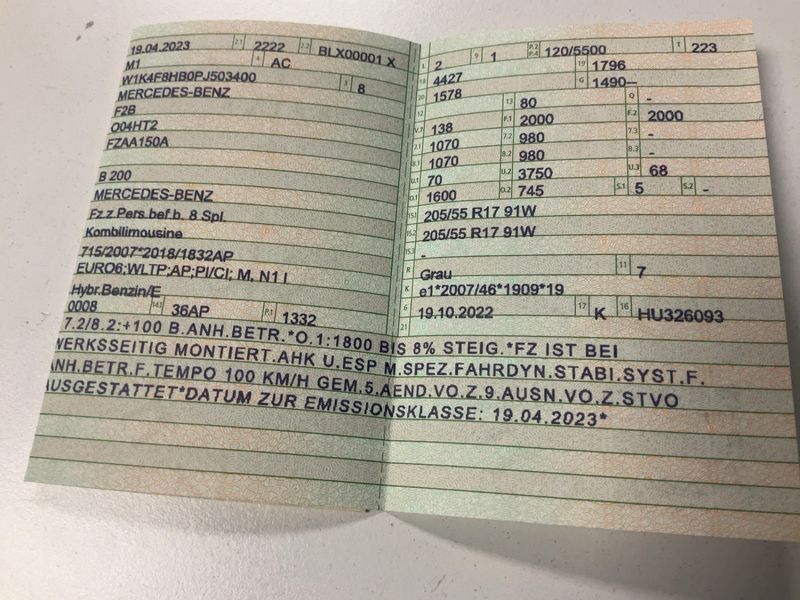 19.04.2023 2.1 2222 2.2 BLX00001 X
M1 4 AC
W1K4F8HB0PJ503400 3 8
MERCEDES-BENZ
F2B
O04HT2
FZAA150A
B 200
MERCEDES-BENZ
Fz.z.Pers.bef.b. 8 Spl.
Kombilimousine
715/2007*2018/1832AP
EURO6;WLTP;AP;PI/CI; M, N1 I
Hybr.Benzin/E
0008 14.1 36AP P.1 1332
L 2 9 1 P.2 P.4 120/5500 T 223
18 4427 19 1796
20 1578 G 1490--
12 13 80 Q -
V.7 138 F.1 2000 F.2 2000
7.1 1070 7.2 980 7.3 -
8.1 1070 8.2 980 8.3 -
U.1 70 U.2 3750 U.3 68
O.1 1600 O.2 745 S.1 5 S.2 -
15.1 205/55 R17 91W
15.2 205/55 R17 91W
15.3 -
R Grau 11 7
K e1*2007/46*1909*19
6 19.10.2022 17 K 16 HU326093
21
7.2/8.2:+100 B.ANH.BETR.*O.1:1800 BIS 8% STEIG.*FZ IST BEI
WERKSSEITIG MONTIERT.AHK U.ESP M.SPEZ.FAHRDYN.STABI.SYST.F.
ANH.BETR.F.TEMPO 100 KM/H GEM.5.AEND.VO.Z.9.AUSN.VO.Z.STVO
AUSGESTATTET*DATUM ZUR EMISSIONSKLASSE: 19.04.2023*